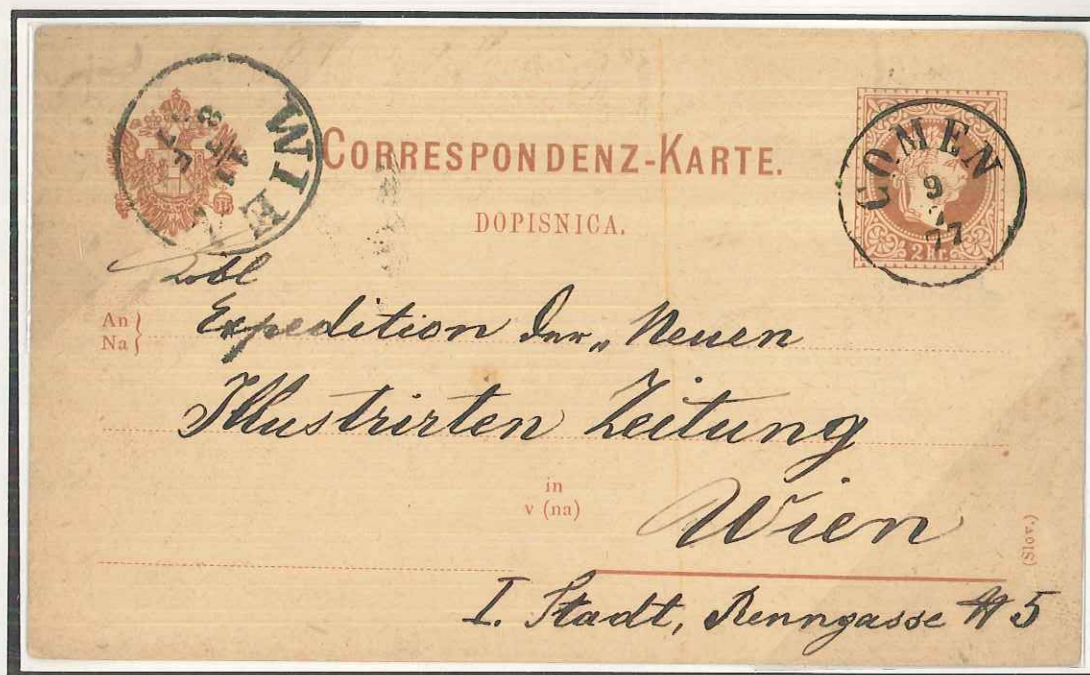 WIEN
CORRESPONDENZ-KARTE.
DOPISNICA.
COMEN
9
7
77
2 kr.
Löbl
An
Na
Expedition der „Neuen
Illustrirten Zeitung
in
v (na)
Wien
(Slov.)
I. Stadt, Renngasse # 5